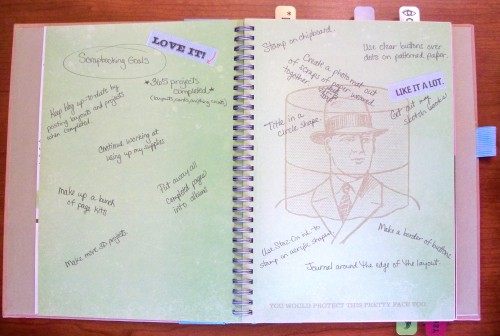 LOVE IT!
Scrapbooking Goals
*365 projects
completed*
(layouts, cards, anything I make)
Keep blog up-to-date by
posting layouts and projects
when completed.
Continue working at
using up my supplies
Make up a bunch
of page kits
Put away all
completed pages
into albums
Make more 3D projects
Stamp on chipboard.
Use clear buttons over
dots on patterned paper.
Create a photo mat out
of scraps of paper
together
LIKE IT A LOT.
Get out my
sketch books!
Title in a
circle shape.
Use Staz-On ink to
stamp on acrylic shapes
Make a border of buttons.
Journal around the edge of the layout
YOU WOULD PROTECT THIS PRETTY FACE TOO.